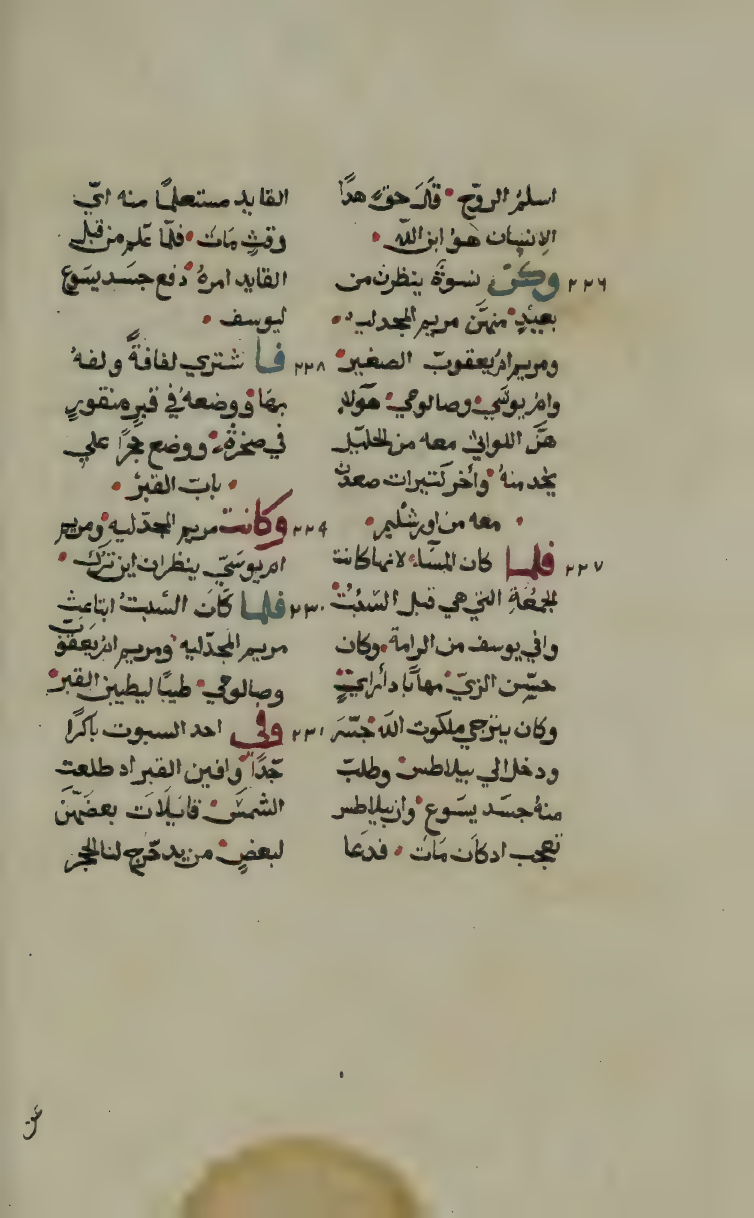 اسلم الروح • قال حق هدا
الانسان هو ابن الله •
٢٢٦ وكن نسوة ينظرن من
بعيد • منهن مريم المجدليه •
ومريم ام يعقوب الصغير •
وام يوسي • وصالومي • هولاء
هن اللواتي معه من الجليل
يخدمنه • وأخر كتيرات صعدن
• معه من اورشليم •
٢٢٧ فلما كان المسآء لانها كانت
الجمعة التي هي قبل السبت •
وافي يوسف من الرامة • وكان
حسن الزي • مهابا دا راي •
وكان يترجي ملكوت الله • جسر
ودخل الي بيلاطس • وطلب
منه جسد يسوع • وان بيلاطس
تعجب اد كان مات • فدعا
القايد مستعلما منه اي
وقت مات • فلما علم من قبل
القايد امره • دفع جسد يسوع
ليوسف •
٢٢٨ فاشتري لفافة ولفه
بها • ووضعه في قبر منقور
في صخرة • ووضع حجرا علي
• باب القبر •
٢٢٩ وكانت مريم المجدليه • ومريم
ام يوسي ينظران اين ترك •
٢٣٠ فلما كان السبت ابتاعت
مريم المجدليه • ومريم ام يعقوب
وصالومي • طيبا ليطيبن القبر •
٢٣١ وفي احد السبوت باكرا
جدا • وافين القبر اد طلعت
الشمس • قايلات بعضهن
لبعض • من يدحرج لنا الحجر
عن